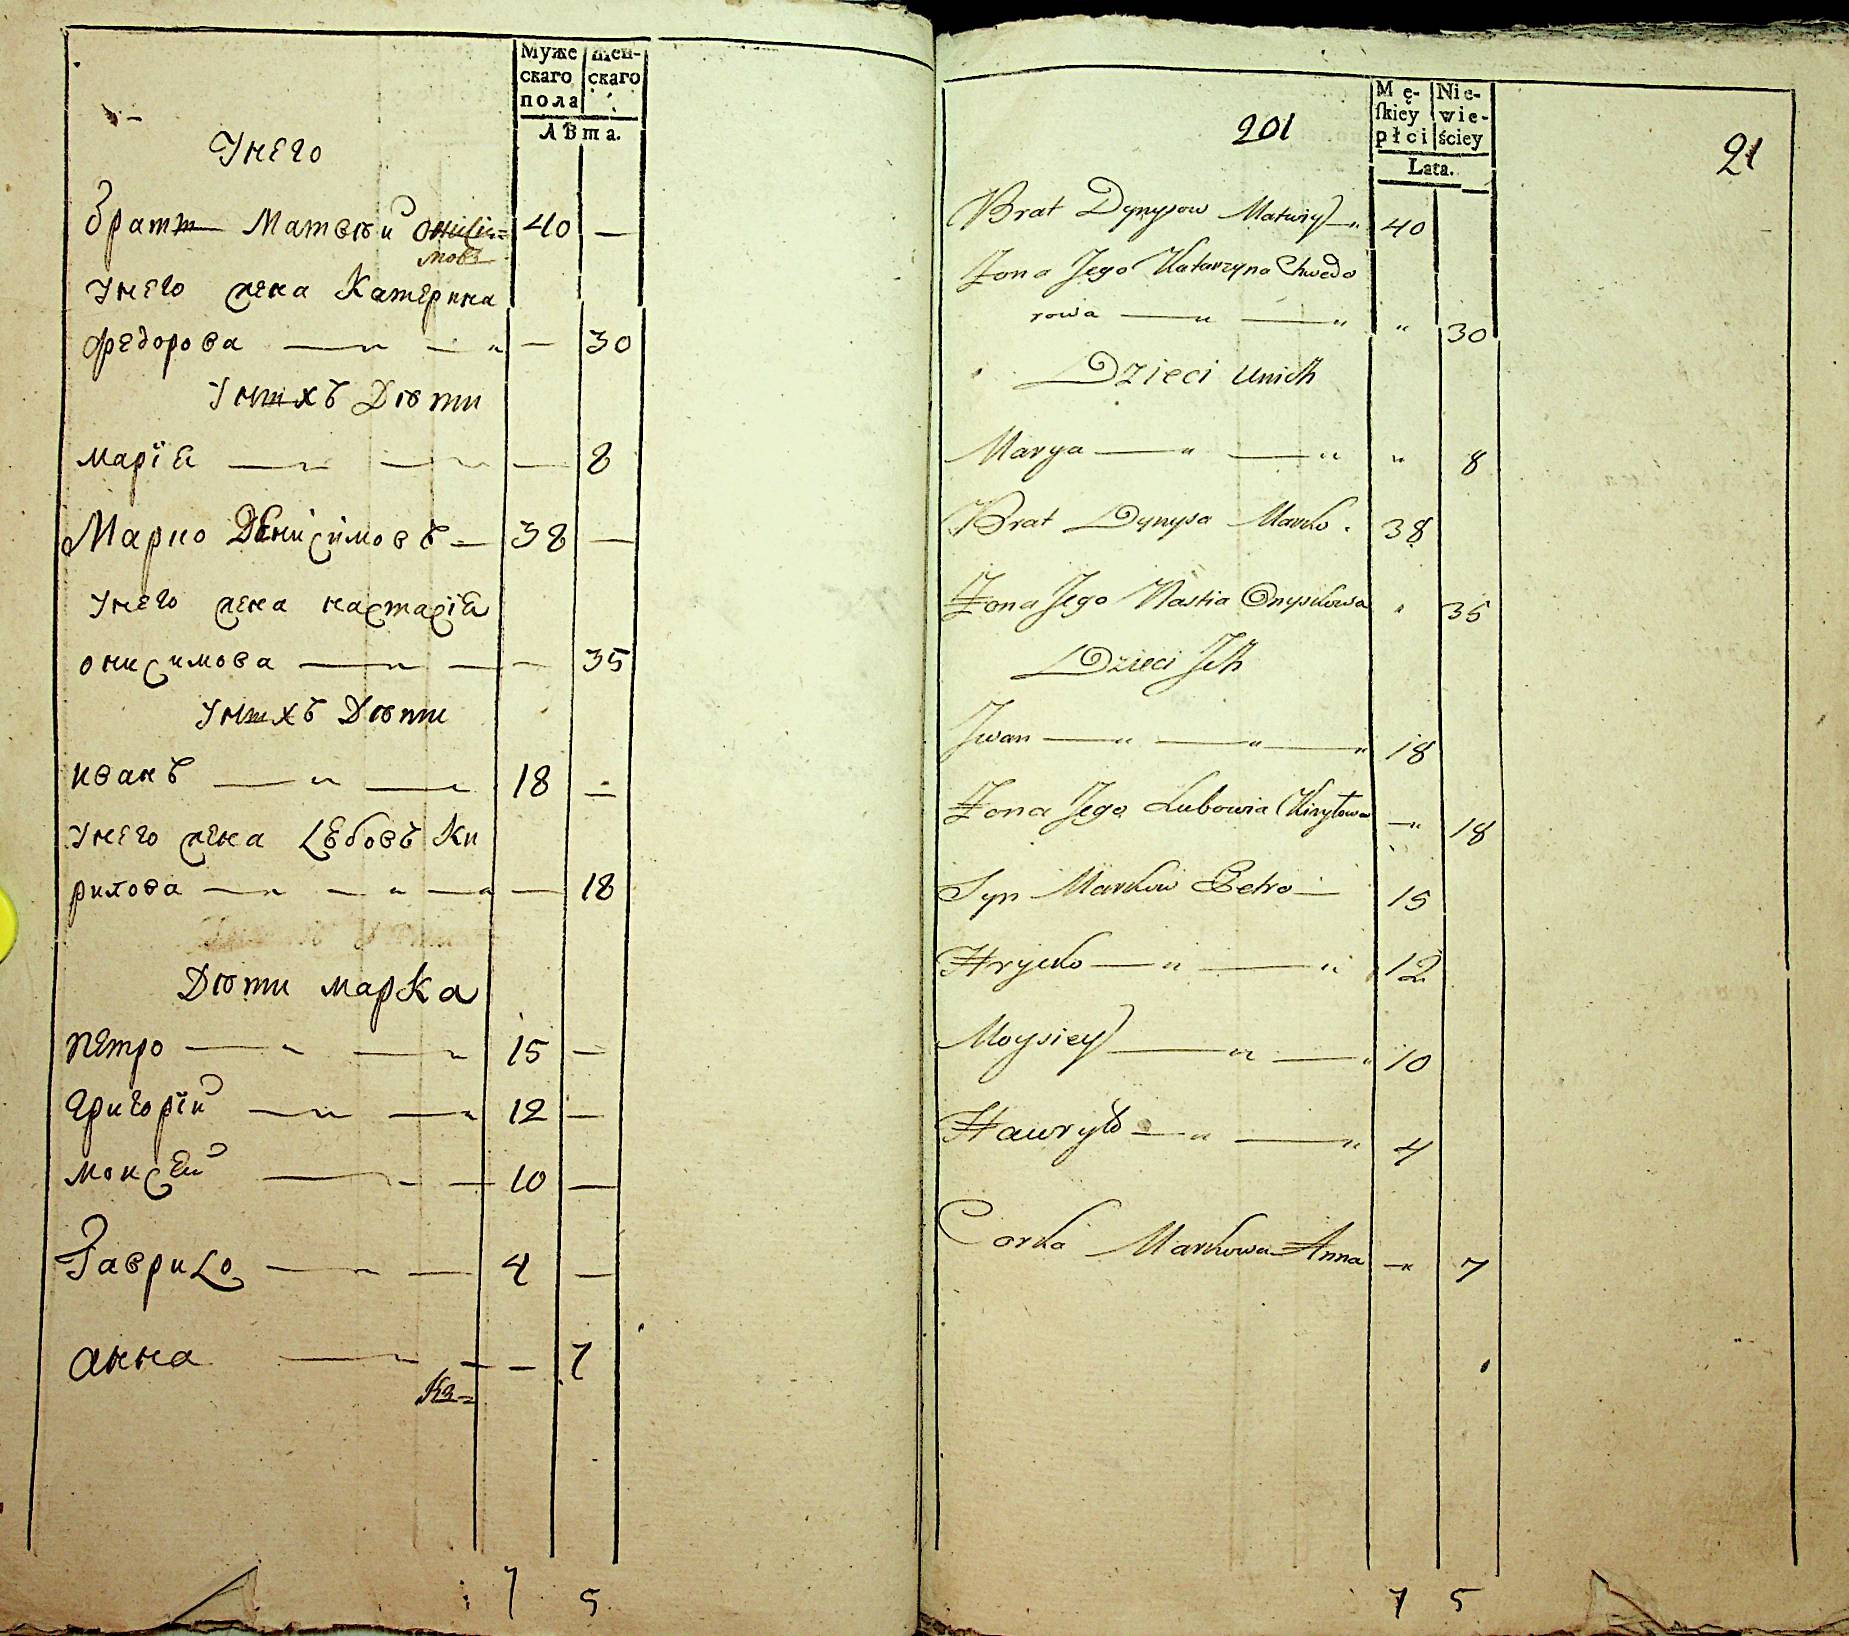 Муже
скаго
пола
жен-
скаго
Лѣта.
Унего
братъ Матвѣй Онiсi=
мовъ
40 —
унего жена Катерина
федорова — 30
Унихъ Дѣти
марїя — 8
Марко Онисимовъ — 38 —
унего жена настасїя
онисимова — 35
Унихъ Дѣти
иванъ — 18 —
унего жена Любовь Ки
рилова — 18
Дѣти марка
петро — 15 —
григорїй — 12 —
моисей — 10 —
Гаврило — 4 —
анна — 7
7 5
201
21
Mę-
ſkiey
płci
Nie-
wie-
ściey
Lata.
Brat Dynysow Matwiy — 40
Zona Jego Katarzyna Chwedo
rowa — " — " " 30
Dzieci unich
Marya — " — " " 8
Brat Dynysa Marko. 38
Zona Jego Nastia Onysikowa " 35
Dzieci Ich
Jwan — " — " — " 18
Zona Jego Lubowia Kiryłowa — " 18
Syn Markow Petro — 15
Hrycko — " — " 12
Moysiey — " — " 10
Hawryło — " — " 4
Corka Markowa Anna — " 7
7 5